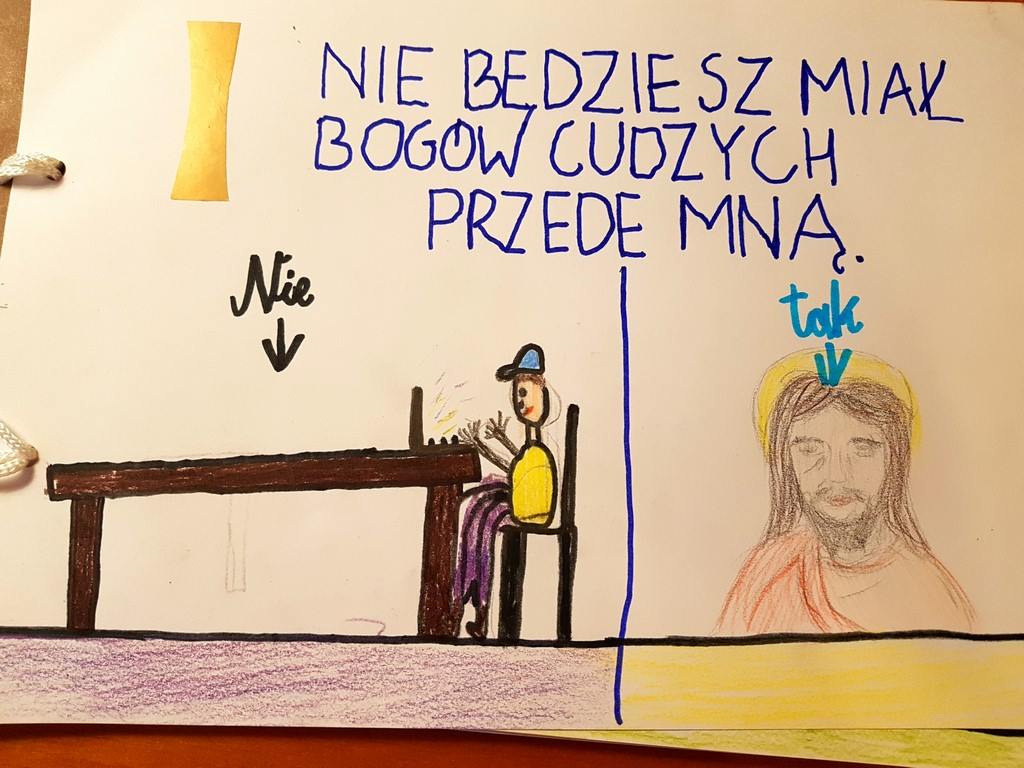 I
NIE BĘDZIESZ MIAŁ
BOGÓW CUDZYCH
PRZEDE MNĄ.
Nie
tak